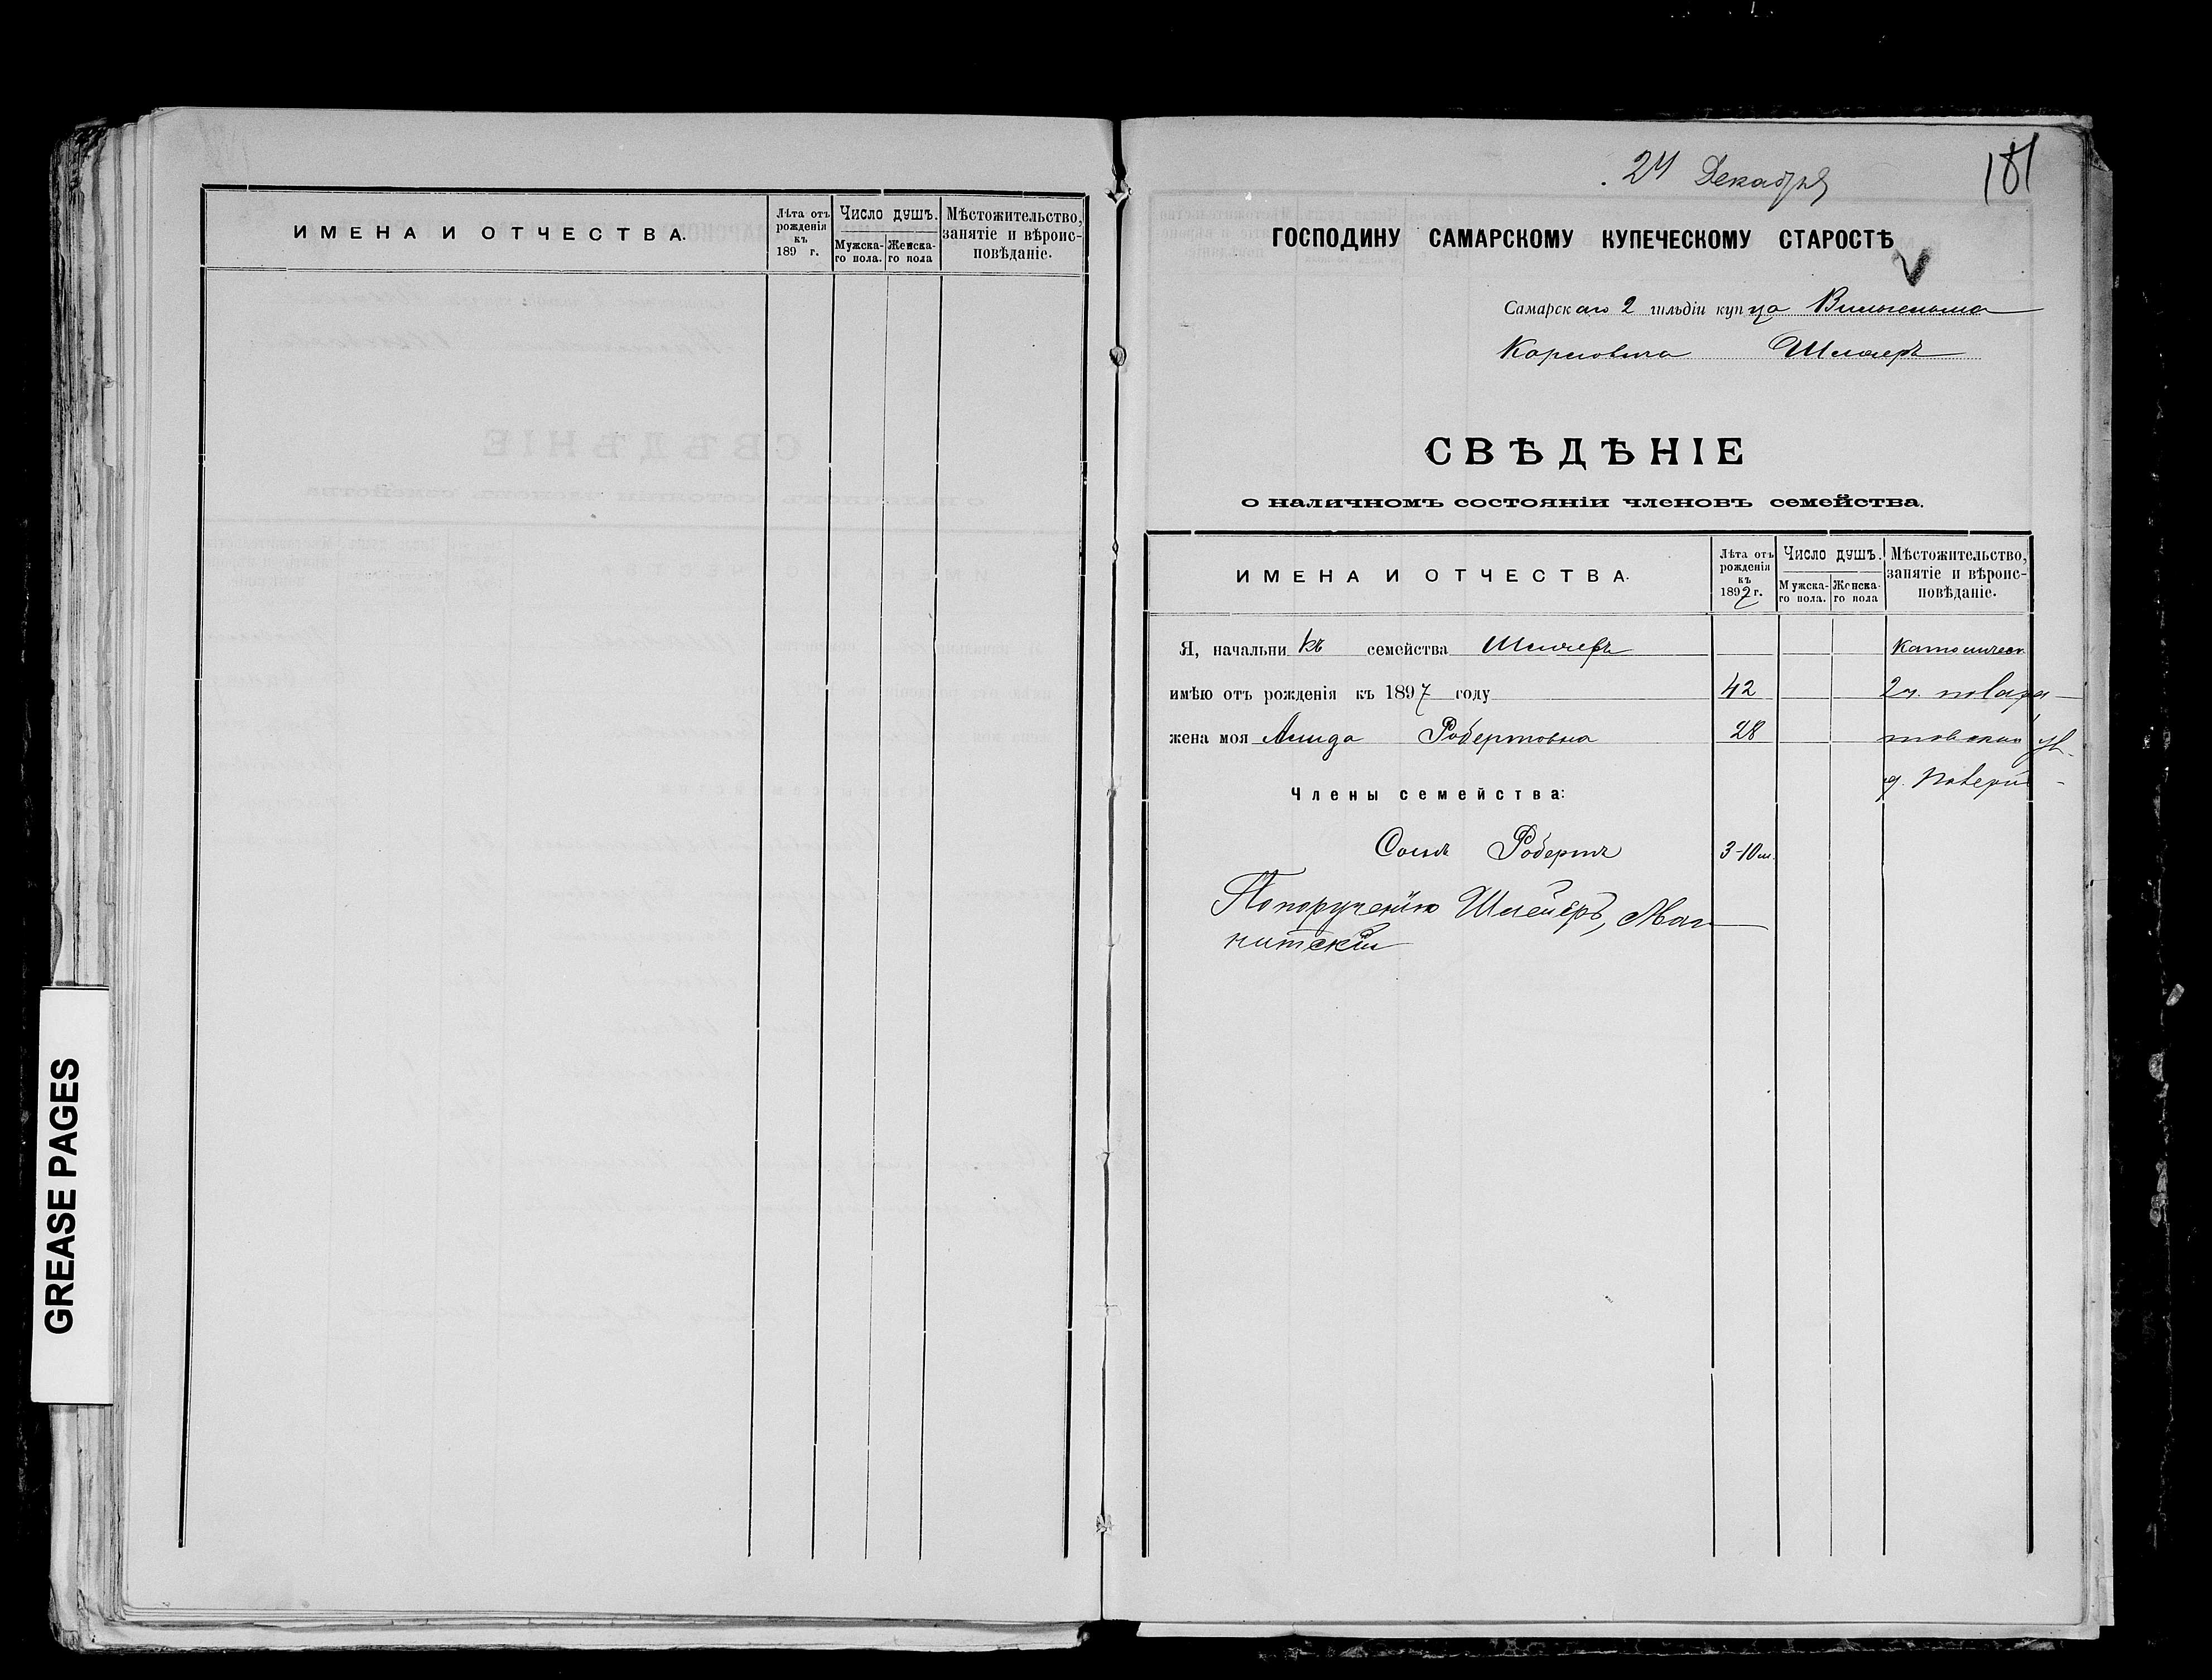 ИМЕНА И ОТЧЕСТВА.
Лѣта отъ рожденія къ 189 г.
Число душъ.
Мужска-го пола.
Женска-го пола
Мѣстожительство, занятіе и вѣроис-повѣданіе.
24 Декабря
181
ГОСПОДИНУ САМАРСКОМУ КУПЕЧЕСКОМУ СТАРОСТѢ
Самарскаго 2 гильдіи купца Вильгельма
Карловича Шлееръ
СВѢДѢНІЕ
о наличномъ состояніи членовъ семейства.
ИМЕНА И ОТЧЕСТВА.
Лѣта отъ рожденія къ 1897 г.
Число душъ.
Мужска-го пола.
Женска-го пола
Мѣстожительство, занятіе и вѣроис-повѣданіе.
Я, начальникъ семейства Шлееръ
имѣю отъ рожденія къ 1897 году 42 2 ч.
жена моя Алида Робертовна 28
Члены семейства:
Сынъ Робертъ 3-10 м.
По порученію Шлейеръ, Маг
нитскій
GREASE PAGES